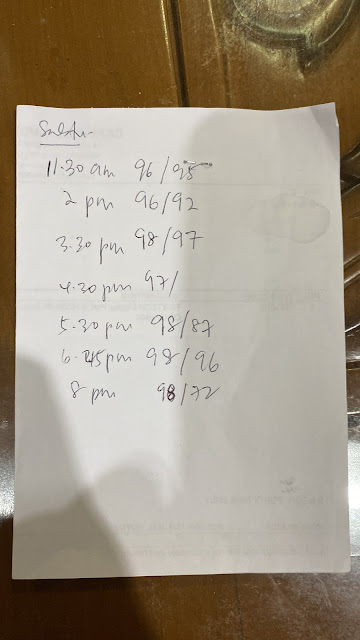 11.30 am 96/95
2 pm 96/92
3.30 pm 98/97
4.30 pm 97/
5.30 pm 98/87
6.45pm 98/96
8 pm 98/72